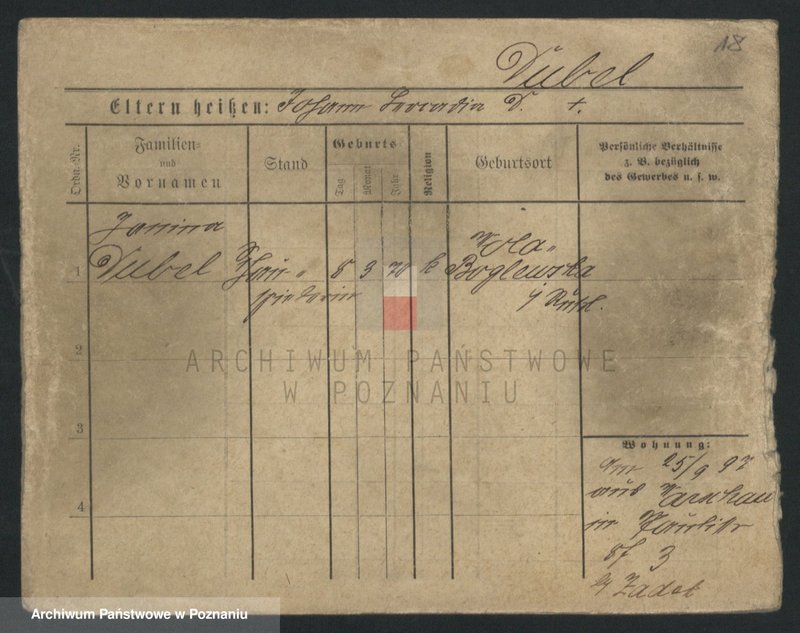 18
Dubel
Eltern heißen: Johann Leocadia D. +.
Ordn.-Nr.
Familien-
und
Vornamen
Stand
Geburts
Tag
Monat
Jahr
Religion
Geburtsort
Persönliche Verhältnisse
z. B. bezüglich
des Gewerbes u. s. w.
Janina
1 Dubel 8 3 70 k Wola-
Boglewska
2
ARCHIWUM PAŃSTWOWE
W POZNANIU
3
4
Wohnung:
am 25/9 97
aus Warschau
in
3
Zadek
Archiwum Państwowe w Poznaniu